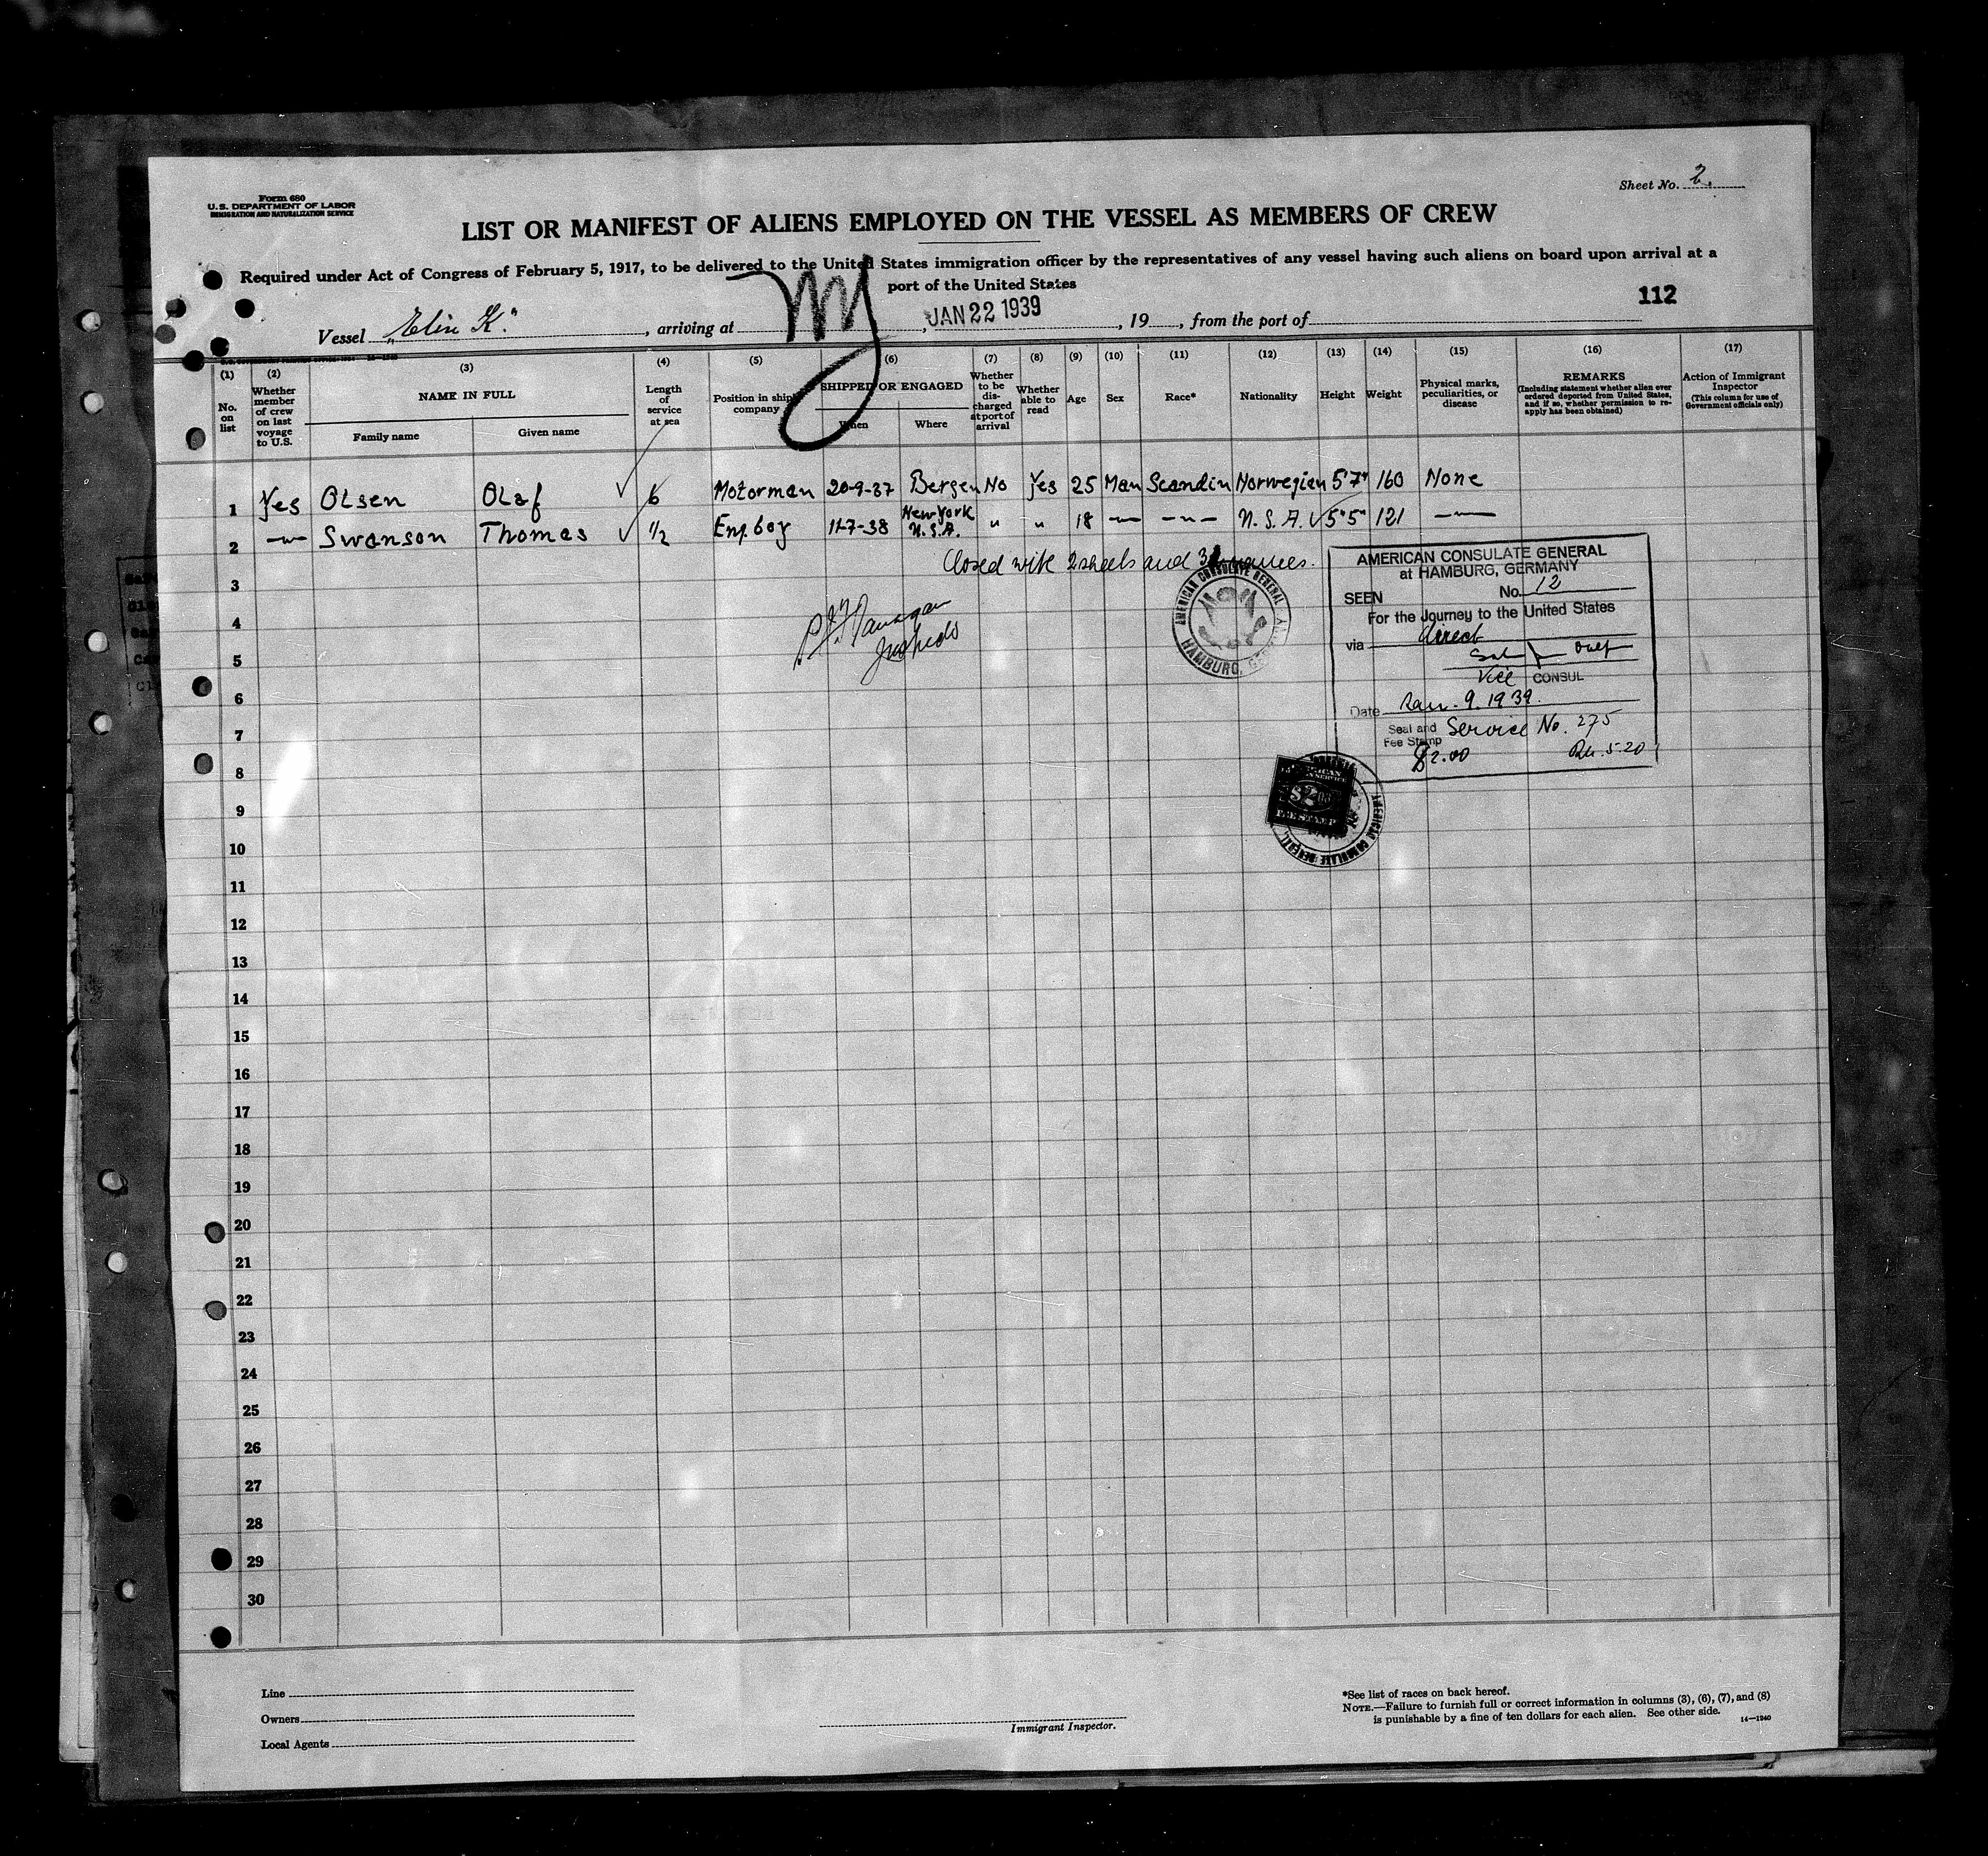 Form 680
U.S. DEPARTMENT OF LABOR
IMMIGRATION AND NATURALIZATION SERVICE
Sheet No. 2.
LIST OR MANIFEST OF ALIENS EMPLOYED ON THE VESSEL AS MEMBERS OF CREW
Required under Act of Congress of February 5, 1917, to be delivered to the United States immigration officer by the representatives of any vessel having such aliens on board upon arrival at a
port of the United States
112
Vessel „Elin K." , arriving at NY , JAN 22 1939 , 19 , from the port of
(1) (2) (3) (4) (5) (6) (7) (8) (9) (10) (11) (12) (13) (14) (15) (16) (17)
No. on list
Whether member of crew on last voyage to U.S.
NAME IN FULL
Family name
Given name
Length of service at sea
Position in ship company
SHIPPED OR ENGAGED
When
Where
Whether to be discharged at port of arrival
Whether able to read
Age
Sex
Race*
Nationality
Height
Weight
Physical marks, peculiarities, or disease
REMARKS
(Including statement whether alien ever ordered deported from United States, and if so, whether permission to reapply has been obtained)
Action of Immigrant Inspector
(This column for use of Government officials only)
1 Yes Olsen Olaf ✓ 6 Motorman 20-9-37 Bergen No Yes 25 Man Scandin Norwegian 5'7" 160 None
2 —"— Swanson Thomas ✓ 1/2 Eng.boy 11-7-38 New York U.S.A. " " 18 —"— —"— U.S.A. ✓ 5"5" 121 —"—
Closed with 2 sheets and 3 names.
AMERICAN CONSULATE GENERAL
HAMBURG, GERMANY
AMERICAN CONSULATE GENERAL
at HAMBURG, GERMANY
SEEN No. 12
For the Journey to the United States
via direct
Vice CONSUL
Date Jan. 9. 1939.
Seal and Fee Stamp Service No. 275
$2.00 Rm. 5.20
AMERICAN CONSULATE GENERAL
3
4
5
6
7
8
9
10
11
12
13
14
15
16
17
18
19
20
21
22
23
24
25
26
27
28
29
30
Line
Owners
Local Agents
Immigrant Inspector.
*See list of races on back hereof.
NOTE.—Failure to furnish full or correct information in columns (3), (6), (7), and (8)
is punishable by a fine of ten dollars for each alien. See other side.
14—1240